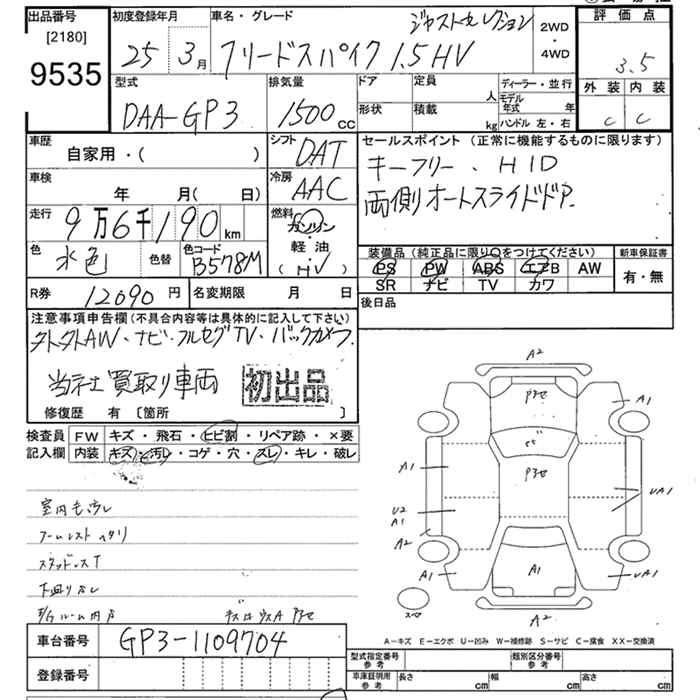 出品番号 初度登録年月 車名・グレード ジャストセレクション 2WD・4WD 評価点
[2180]
9535 25 3月 フリードスパイク 1.5HV 3.5
型式 排気量 ドア 定員 人 ディーラー・並行 外装 内装
DAA-GP3 1500cc 形状 積載 kg モデル年式 年 ハンドル 左・右 C C
車歴 自家用・( ) シフト DAT
セールスポイント (正常に機能するものに限ります)
車検 年 月( 日) 冷房 AAC
キーフリー、HID
両側オートスライドドア.
走行 9万6千190km 燃料 ガソリン
軽油
(HV)
色 水色 色替 色コード B578M
装備品 (純正品に限り○をつけてください) 新車保証書
PS PW ABS エアB AW 有・無
SR ナビ TV カワ
R券 12090円 名変期限 月 日 後日品
注意事項申告欄 (不具合内容等は具体的に記入して下さい)
外外AW・ナビ・フルセグTV・バックカメラ
当社買取り車両 初出品
修復歴 有 [箇所 ]
検査員 FW キズ・飛石・ヒビ割・リペア跡・×要
記入欄 内装 キズ・汚レ・コゲ・穴・スレ・キレ・破レ
A2
A1
A1
U2
A1
A2
UA1
A1
A1
UA1
A2
室内キ、汚レ
アームレスト ヘタリ
下回りサビ
車台番号 GP3-1109704
A-キズ E-エクボ U-凹み W-補修跡 S-サビ C-腐食 XX-交換済
登録番号
型式指定番号 参考 類別区分番号 参考
車庫証明用 参考 長さ cm 幅 cm 高さ cm